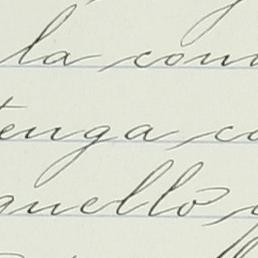 la con
tenga co
quello